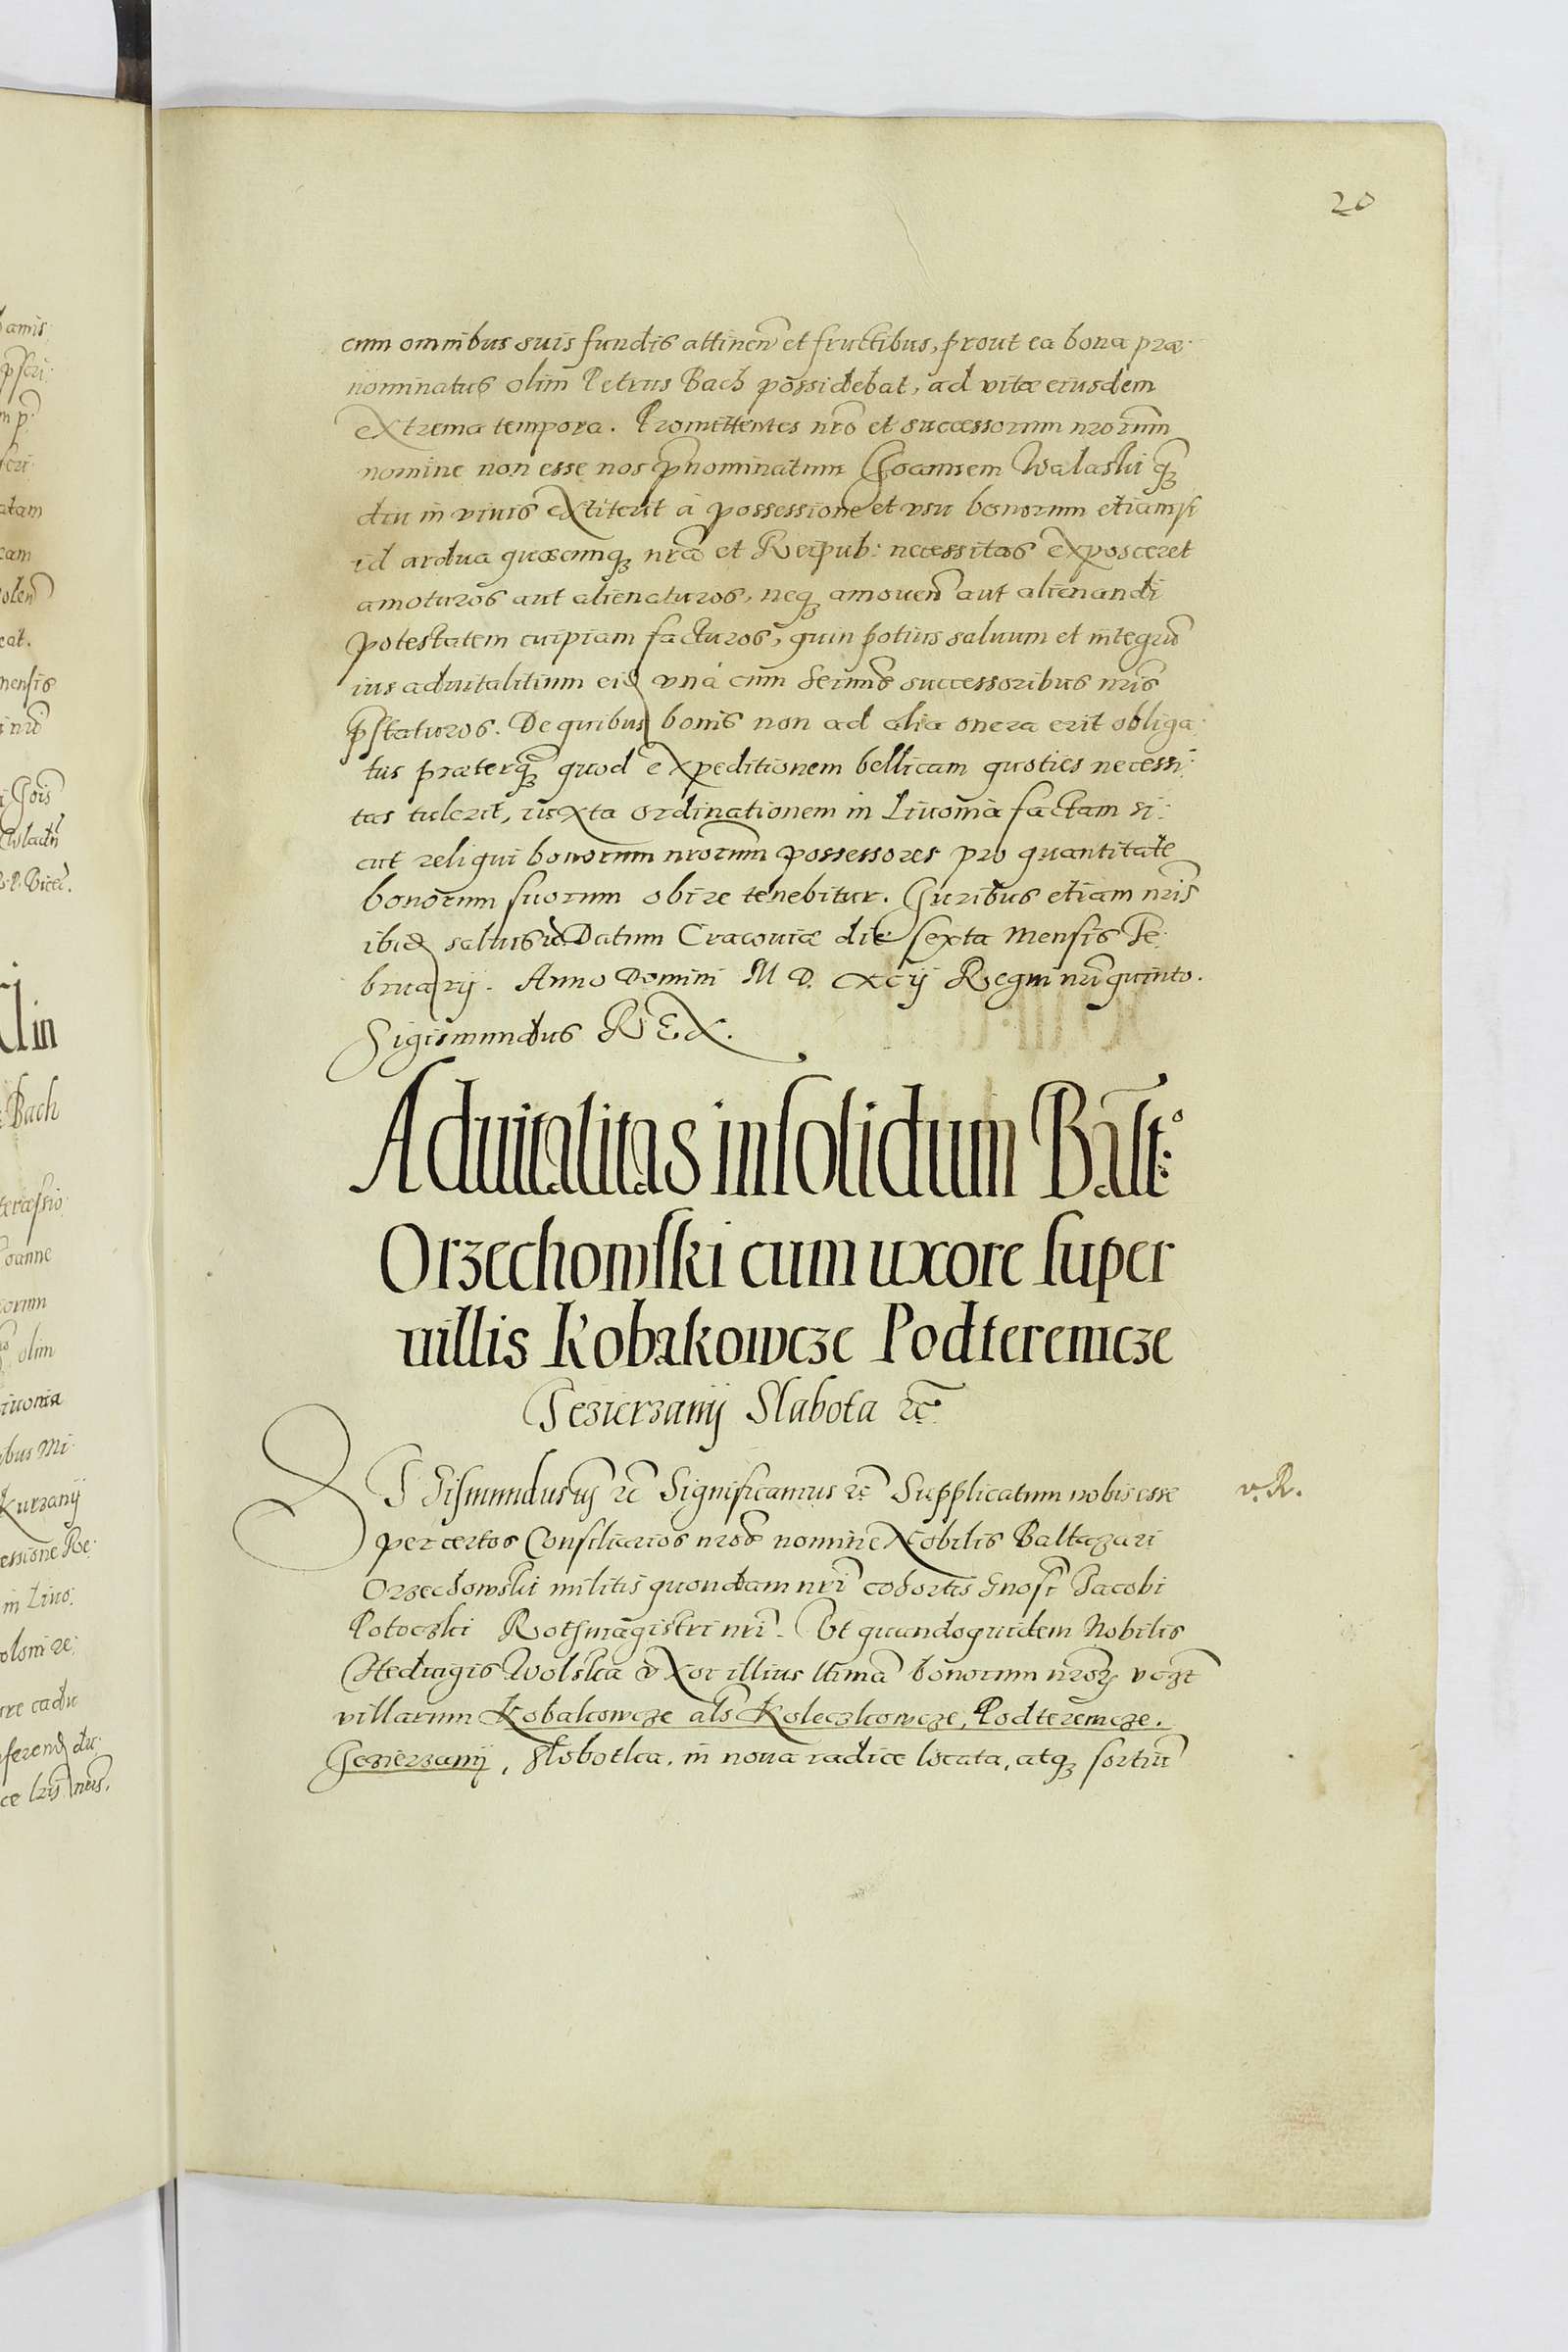 20
cum omnibus suis fundis attinen et fructibus, prout ea bona præ
nominatus olim Petrus Bach possidebat, ad vitæ eiusdem
extrema tempora. Promittentes nrõ et successorum nrorum
nomine non esse nos p̃nominatum Joannem Walaski q̃ꝫ
diu in viuis extiterit à possessione et vsu bonorum etiamsi
id ardua quæcunqꝫ nrã et Reipub: necessitas exposceret
amoturos aut alienaturos, neqꝫ amouen aut alienandi
potestatem cuipiam facturos, quin potius saluum et integrũ
ius aduitalitium eid vnà cum Serimis successoribus nris
p̃staturos. De quibus bonis non ad alia onera erit obliga
tus præterq̃ꝫ quod expeditionem bellicam quoties necessi
tas tulerit, iuxta ordinationem in Liuonia factam si
cut reliqui bonorum nrorum possessores pro quantitate
bonorum suorum obire tenebitur. Juribus etiam nris
ibid saluis Datum Cracouiæ die sexta Mensis Fe
bruarij. Anno Domini M D. XCij Regni nri quinto.
Sigismundus REX.
Aduitalitas in solidum Balt:
Orzechowski cum uxore super
villis Kobakowcze Podteremcze
Jezierzanij Slabota ꝛc̃
SIGismundus iij ꝛc̃ Significamus ꝛc̃ Supplicatum nobis esse
v. R.
per certos Consiliarios nros nomine Nobilis Baltazari
Orzechowski militis quondam nri cohortis Gnosi Jacobi
Potoczki Rothmagistri nri. Vt quandoquidem Nobilis
Heduigis Wolska vxor illius ltima bonorum nrorꝫ vczt
villarum Kobakowcze als Koleczkowcze, Podteremcze.
Jezierzanij, Slobotka, in noua radice locata, atqꝫ sortiũ